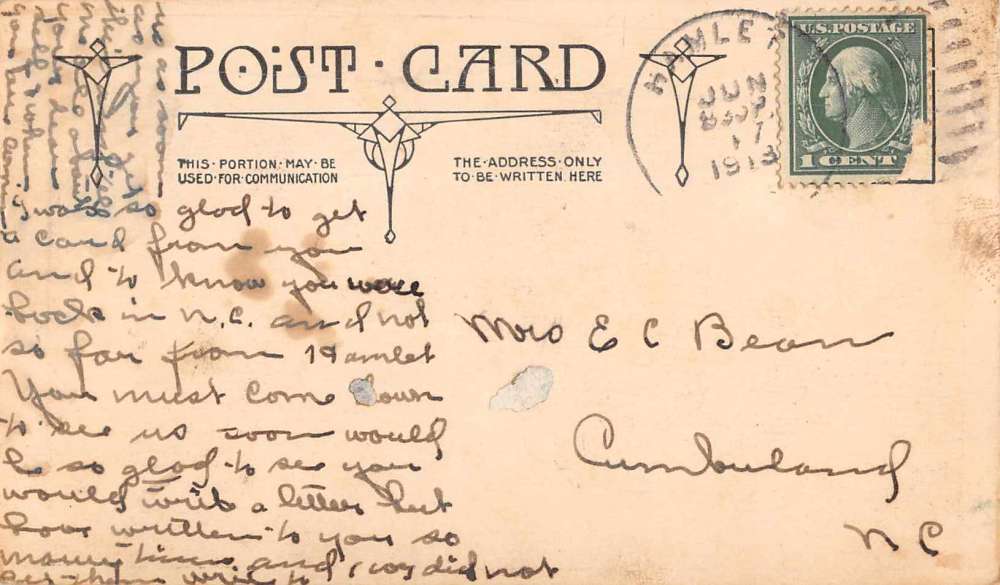 POST CARD
THIS PORTION MAY BE
USED FOR COMMUNICATION
THE ADDRESS ONLY
TO BE WRITTEN HERE
HAMLET
JUN
17
1913
U.S. POSTAGE
1 CENT
I was so glad to get
a card from you
and to know you were
back in N.C. and not
so far from Hamlet
You must come down
to see us soon would
be so glad to see you
would write a letter but
have written to you so
many times and you did not
get them write to
us as soon
as you get
this
Mrs E C Bean
Cumberland
N C